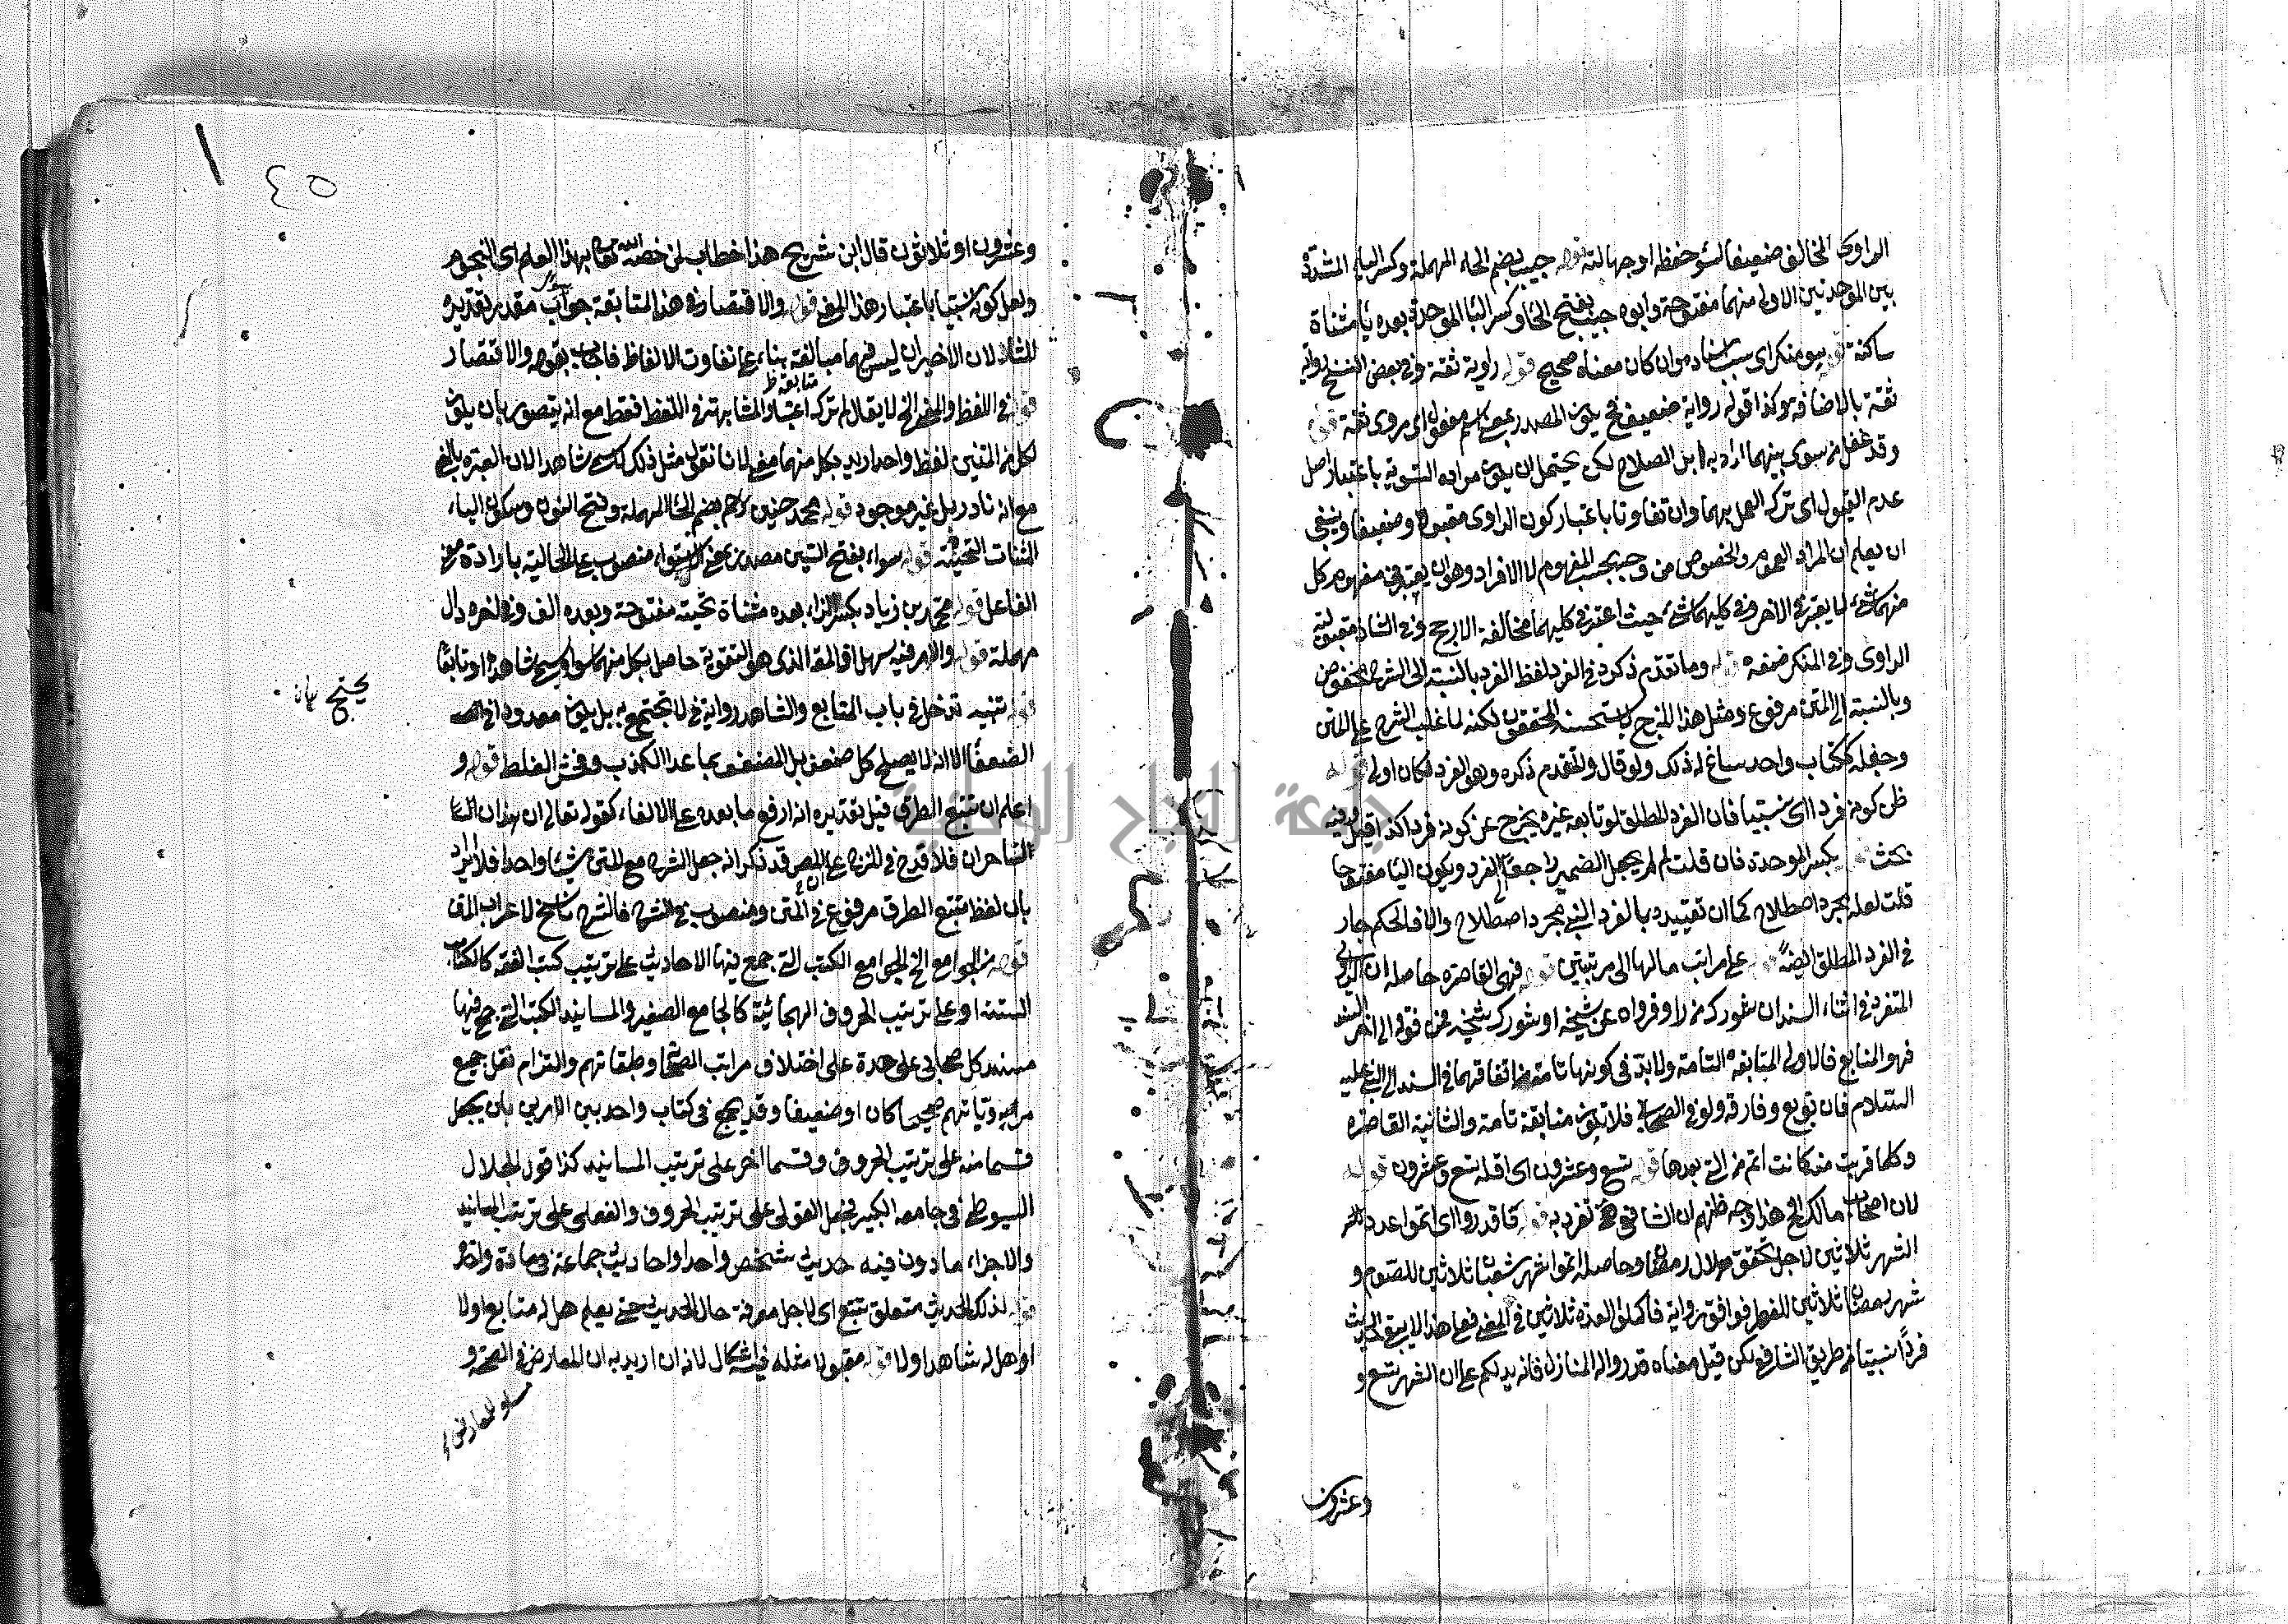 الراوى المخالف ضعيفا لسوء حفظه او جهالته قوله حبيب بضم الحاء المهملة وكسر الياء المشددة
بين الموحدتين الاولى منهما مفتوحة وابوه حبيب بفتح الحا وكسر البا الموحدة بعده يا مثناة
ساكنة قوله هو منكر اى بسبب اسناده وان كان معناه صحيح قوله رواية ثقة وفى بعض النسخ رواية
ثقة بالاضافة وكذا قوله رواية ضعيف فح يكون المصدر بمعنى اسم مفعول اى مروى ثقة قوله
وقد غفل من سوى بينهما اراد به ابن الصلاح لكن يحتمل ان يكون مراده التسوية باعتبار اصل
عدم القبول اى ترك العمل بهما وان تفاوتا باعتبار كون الراوى مقبولا وضعيفا وينبغى
ان يعلم ان المراد العموم والخصوص من وجه بحسب المفهوم لا الافراد وهو ان يعتبر فى مفهوم كل
منهما شئ لا يعتبر فى الاخر وفى كليهما شئ حيث اعتبر فى كليهما مخالفة الارجح وفى الشاذ مقبولية
الراوى وفى المنكر ضعفه قوله وما تقدم ذكره فى الفرد لفظ الفرد بالنسبة الى الشرح مخفوض
وبالنسبة الى المتن مرفوع ومثل هذا المزج لا يستحسنه المحققون لكنه لما غلب الشرح على المتن
وجعله ككتاب واحد ساغ له ذلك ولو قال والمتقدم ذكره وهو الفرد لكان اولى قوله
ظن كونه فردا اى نسبيا فان الفرد المطلق لو تابعه غيره يخرج عن كونه فردا كذا قيل وفيه
بحث قوله بكسر الموحدة فان قلت لم لم يجعل الضمير راجعا الى الفرد ويكون اليا مفتوحا
قلت لعله مجرد اصطلاح كما ان تقييده بالفرد النسبى مجرد اصطلاح والا فالحكم جار
فى الفرد المطلق ايضا قوله على مراتب مالها الى مرتبتين قوله فهى القاصرة حاصله ان الراوى
المتفرد فى اثناء السند ان شورك من راو فرواه عن شيخه او شورك شيخه فمن فوقه الى اخر السند
فهو المتابع فالاولى المتابعة التامة ولا بد فى كونها تامة من اتفاقهما فى السند الى النبى عليه
السلام فان توبع وفارقه ولو فى الصحابى فلا تكون متابعة تامة والثانية القاصرة
وكلما قربت منه كانت اتم من التى بعدها قوله تسع وعشرون اى اقله تسع وعشرون قوله
لان اصحاب مالك الخ هذا وجه ظنهم ان الشافعى تفرد به قوله فاقدروا اى اتموا عدد
الشهر ثلاثين لاجل تحقق هلال رمضان وحاصله اتموا شهر شعبان ثلاثين للصوم و
شهر رمضان ثلاثين للفطر فوافق رواية فاكملوا العدة ثلاثين فى المعنى فعلى هذا لا يبقى الحديث
فردا نسبيا من طريق الشافعى لكن قيل معناه قدروا له المنازل فانه يدلكم على ان الشهر تسع و
وعشرون
٤٥
وعشرون او ثلاثون قال ابن شريح هذا خطاب لمن خصه الله تعالى بهذا العلم اى النجوم
ولعل كونه نسبيا باعتبار هذا المعنى قوله والاقتصار فى هذا المتابعة جواب سؤال مقدر تقديره
للشاذ لان الاخيران ليس فيهما مبالغة بناء على تفاوت الالفاظ فاجاب بقوله والاقتصار
قوله فى اللفظ والمعنى الخ لا يقال لم ترك اعتبار المشابهة متابعة ظ فى اللفظ فقط مع انه يتصور بان يكون
لكل من المتنين لفظ واحد اريد بكل منهما معنى لانا نقول مثل ذلك لا يسمى شاهدا لان العبرة بالمعنى
مع انه نادر بل غير موجود قوله محمد حنين لاحم بضم الحا المهملة وفتح النون وسكون الياء
المثنات التحتية قوله سواء بفتح السين مصدر بمعنى الاستواء منصوب على الحالية بارادة معنى
الفاعل قوله محمد بن زياد بكسر الزاء بعده مثناة تحتية مفتوحة وبعده الف وفى اخره دال
مهملة قوله والامر فيه سهل اذ المقص الذى هو التقوية حاصل بكل منهما سواء سمى شاهدا او تابعا
قوله تنبيه تدخل فى باب المتابع والشاهد رواية من لا يحتج به بل يكون معدودا فى
يحتج بيان
الضعفا الا انه لا يصلح كل ضعيف بل المضعف بما عدا الكذب وفحش الغلط قوله و
اعلم ان تتبع الطرق قيل تقديره انه ارفع ما بعده على الالغاء كقوله تعالى ان هذان
لساحران فلا قدح فى المزج على المص قد ذكر انه جعل الشرح مع المتن شيئا واحدا فلا ايراد
بان لفظ تتبع الطرق مرفوع فى المتن ومنصوب فى الشرح فالشرح ناسخ لاعراب المتن
قوله من الجوامع الخ الجوامع الكتب التى جمع فيها الاحاديث على ترتيب كتب الفقه كالكتب
الستة او على ترتيب الحروف الهجائية كالجامع الصغير والمسانيد الكتب التى جمع فيها
مسند كل صحابى على حدة على اختلاف مراتب الصحابة وطبقاتهم والتزام نقل جميع
مروياتهم صحيحا كان او ضعيفا وقد يجمع فى كتاب واحد بين الامرين بان يجعل
قسما منه على ترتيب الحروف وقسما اخر على ترتيب المسانيد كذا قول الجلال
السيوطى فى جامعه الكبير فجعل القولى على ترتيب الحروف والفعلى على ترتيب المسانيد
والاجزاء ما دون فيه حديث شخص واحد او احاديث جماعة فى مادة واحدة
قوله لذلك الحديث متعلق بتتبع اى لاجل معرفة حال الحديث حتى يعلم هل له متابع اولا
او هل له شاهد اولا قوله مقبولا مثله فيه اشكال لانه ان اريد به ان المعارض فى الصحة و
مساو للمعارض
جامعة النجاح الوطنية